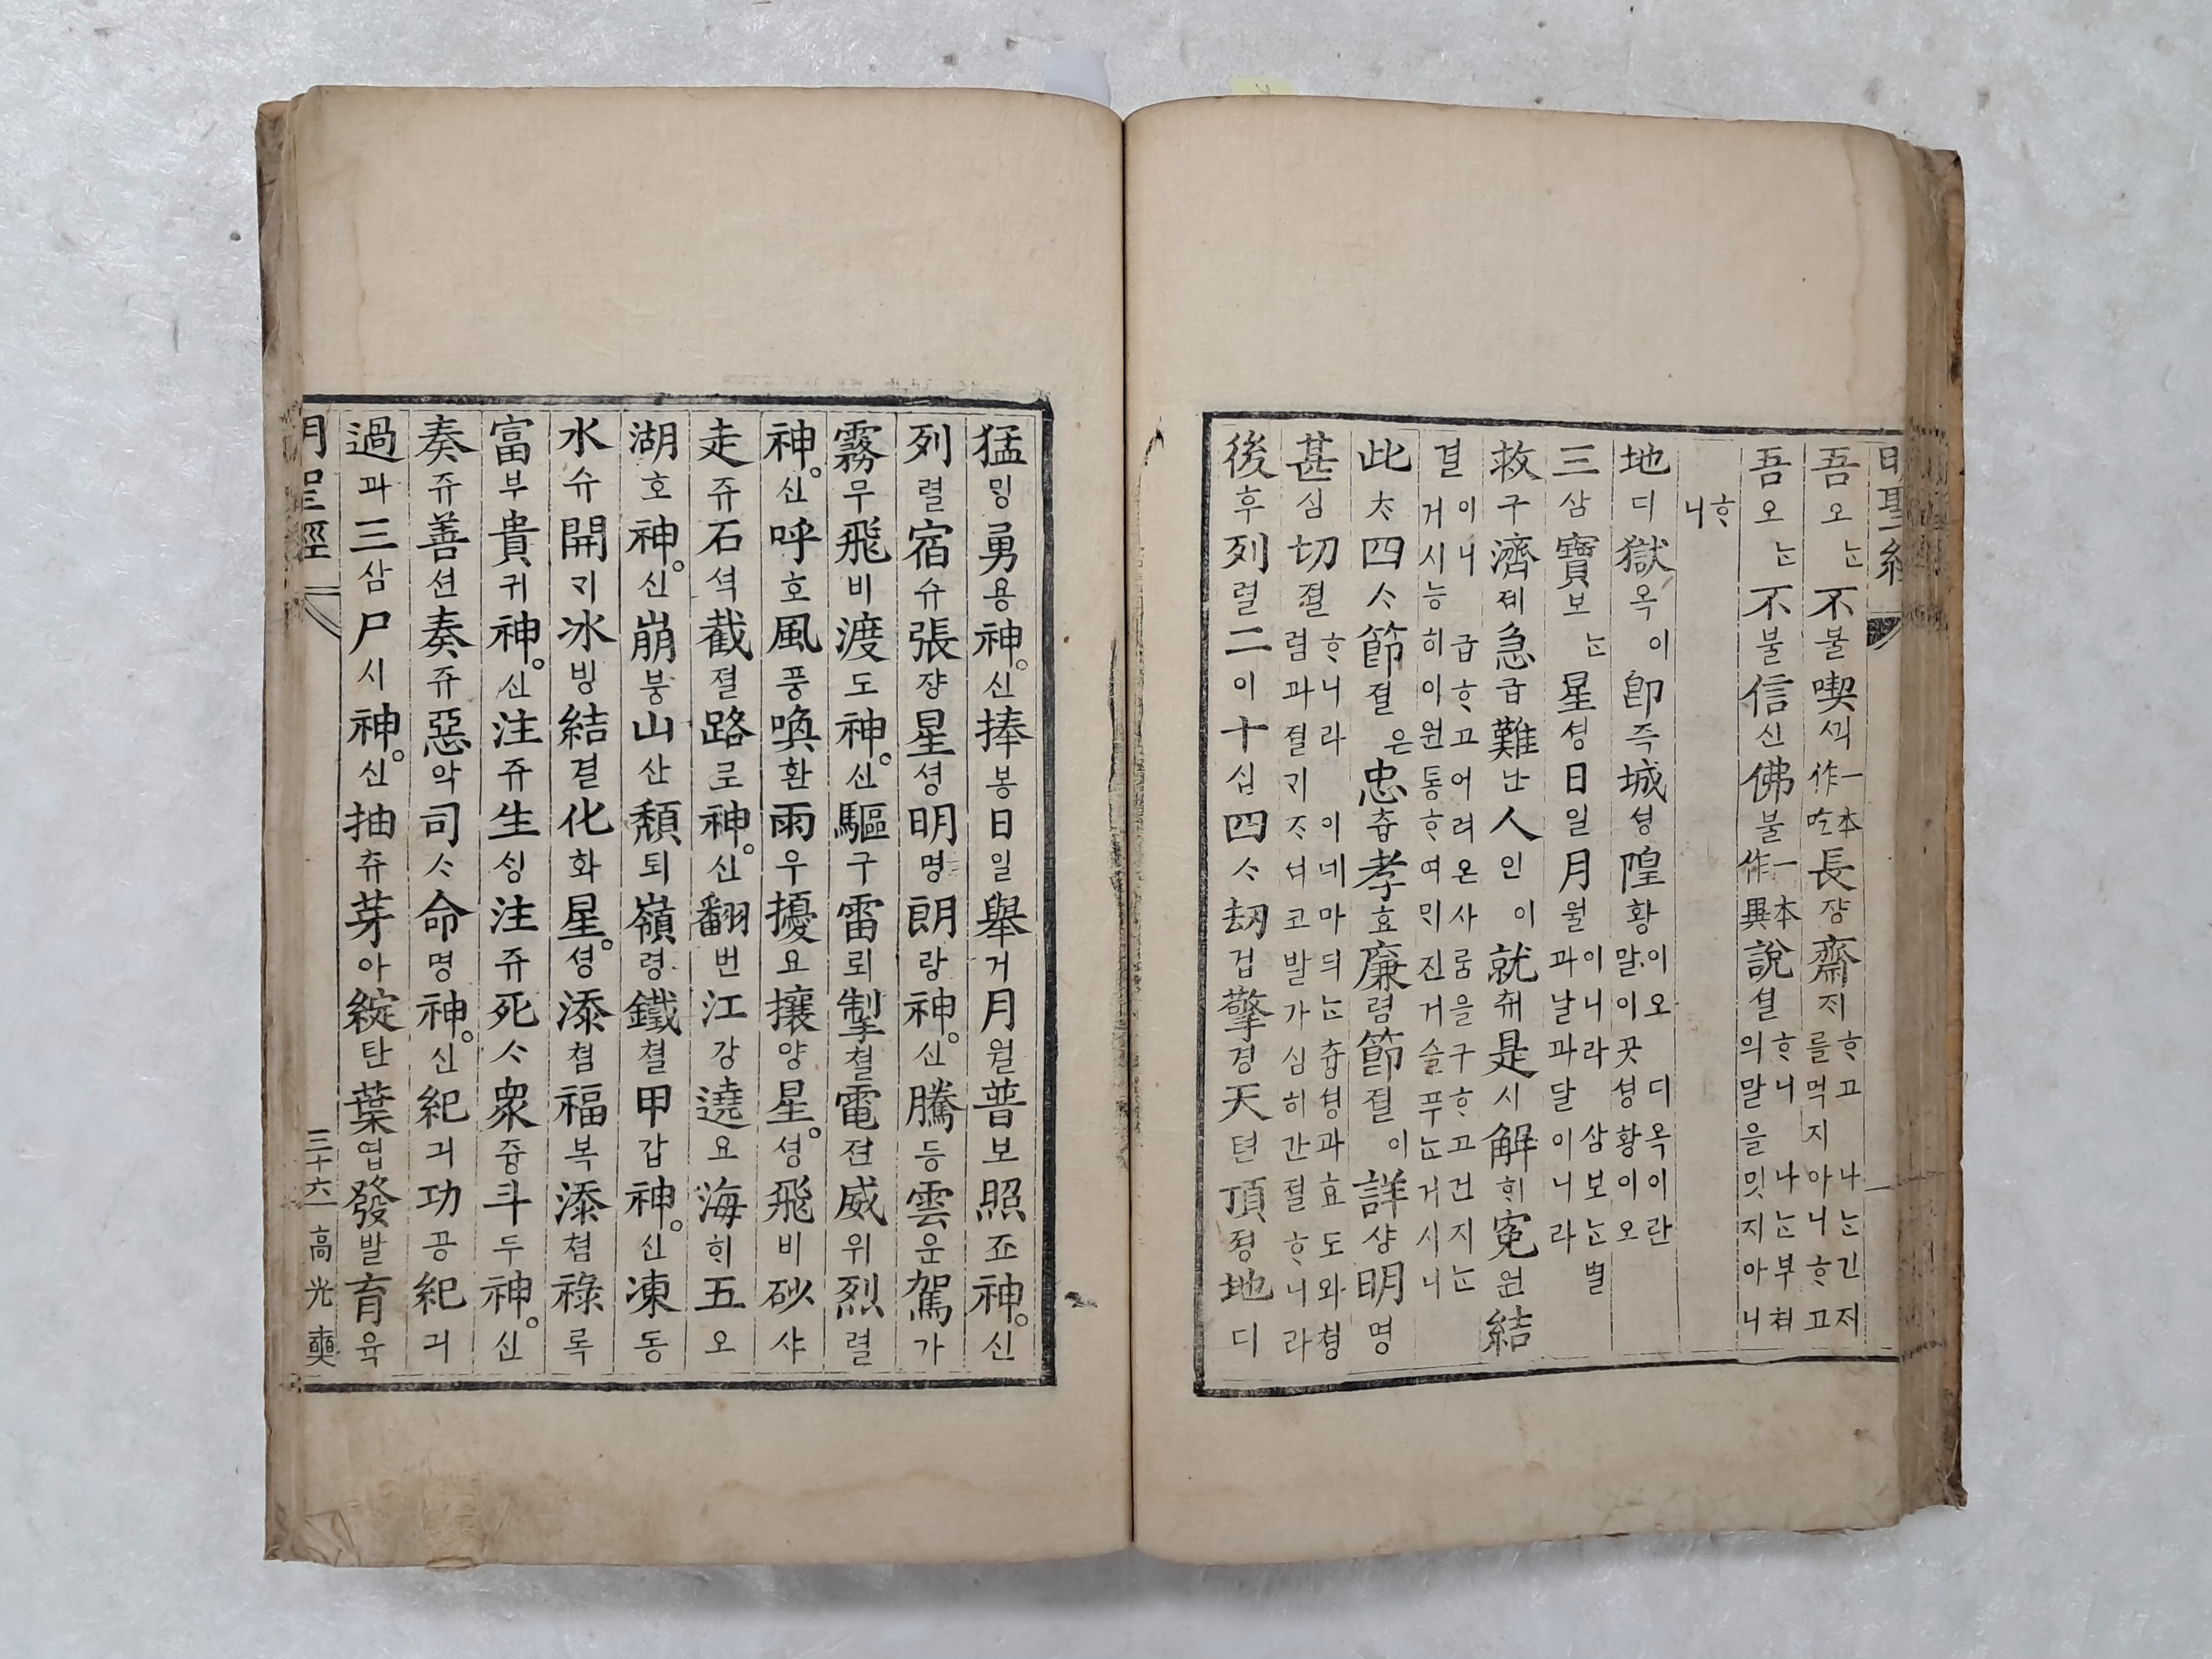 明聖經
吾오ᄂᆞᆫ不불喫ᄭᅵᆨ一本作吃長쟝齋ᄌᆡᄒᆞ고 나ᄂᆞᆫ긴ᄌᆡ를먹지아니ᄒᆞ고
吾오ᄂᆞᆫ不불信신佛불一本作異說셜ᄒᆞ니 나ᄂᆞᆫ부쳐의말을밋지아니
ᄒᆞ니
地디獄옥이卽즉城셩隍황이오 디옥이란말이곳셩황이오
三삼寶보ᄂᆞᆫ星셩日일月월이니라 삼보ᄂᆞᆫ별과날과달이니라
救구濟졔急급難난人인이就ᄎᆔ是시解ᄒᆡ寃원結
결이니 급ᄒᆞ고어려온사ᄅᆞᆷ을구ᄒᆞ고건지ᄂᆞᆫ거시능히이원통ᄒᆞ여ᄆᆡ진거슬푸ᄂᆞᆫ거시니
此ᄎᆞ四ᄉᆞ節졀은忠츙孝효廉렴節졀이詳샹明명
甚심切졀ᄒᆞ니라 이네마듸ᄂᆞᆫ츙셩과효도와쳥렴과졀ᄀᆡᄌᆞ셔코발가심히간졀ᄒᆞ니라
後후列렬二이十십四ᄉᆞ劫겁擎경天텬頂졍地디
猛ᄆᆡᆼ勇용神신。捧봉日일舉거月월普보照죠神신。
列렬宿슈張쟝星셩明명朗랑神신。騰등雲운駕가
霧무飛비渡도神신。驅구雷뢰掣쳘電뎐威위烈렬
神신。呼호風풍喚환雨우擾요攘양星셩。飛비砂사
走쥬石셕截졀路로神신。翻번江강遶요海ᄒᆡ五오
湖호神신。崩붕山산頹퇴嶺령鐵쳘甲갑神신。凍동
水슈開ᄀᆡ冰빙結결化화星셩。添쳠福복添쳠祿록
富부貴귀神신。注쥬生ᄉᆡᆼ注쥬死ᄉᆞ衆즁斗두神신。
奏쥬善션奏쥬惡악司ᄉᆞ命명神신。紀긔功공紀긔
過과三삼尸시神신。抽츄芽아綻탄葉엽發발育육
明聖經 三十六 高光奭